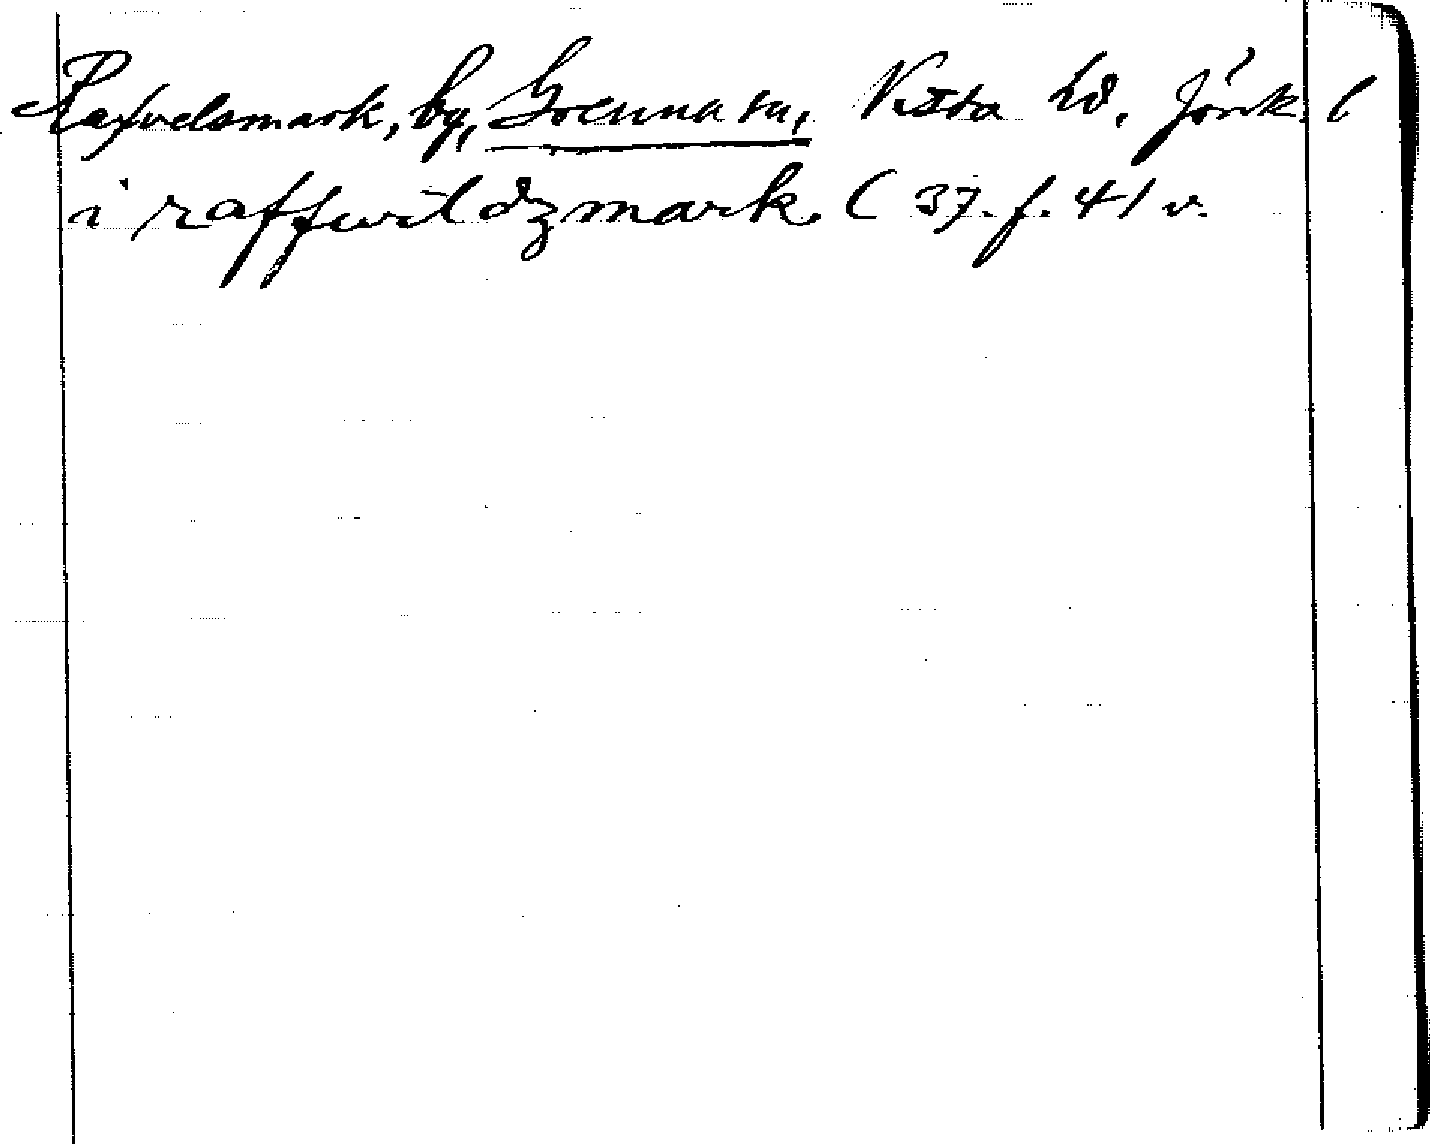 Rafvelsmark, by, Grenna sn, Vista hd. Jönk. l
i raffwildzmark (37. f. 41 v.